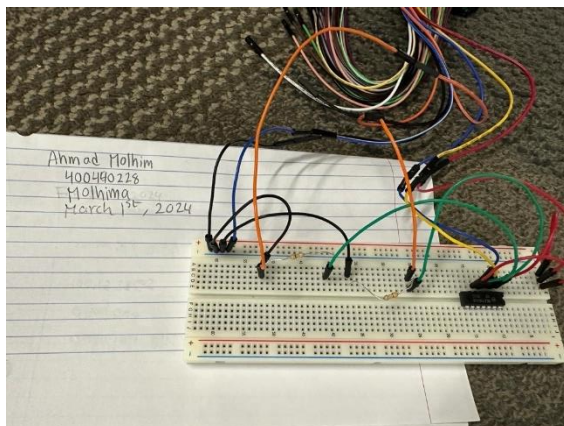 Ahmad Molhim
400440228
Molhima
March 1st, 2024